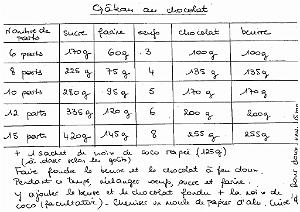 Gâteau au chocolat
Nombre de parts | sucre | farine | œufs | chocolat | beurre
6 parts | 170g | 60g | 3 | 100g | 100g
8 parts | 225g | 75g | 4 | 135g | 135g
10 parts | 280g | 95g | 5 | 170g | 170g
12 parts | 335g | 120g | 6 | 200g | 200g
15 parts | 420g | 145g | 8 | 255g | 255g
+ 1 sachet de noix de coco rapée (125g)
(à doser selon les goûts)
Faire fondre le beurre et le chocolat à feu doux.
Pendant ce temps mélanger œufs, sucre et farine.
Y ajouter le beurre et le chocolat fondu + la noix de
coco (facultatif). Chemiser un moule de papier d'alu. Cuire
à four doux